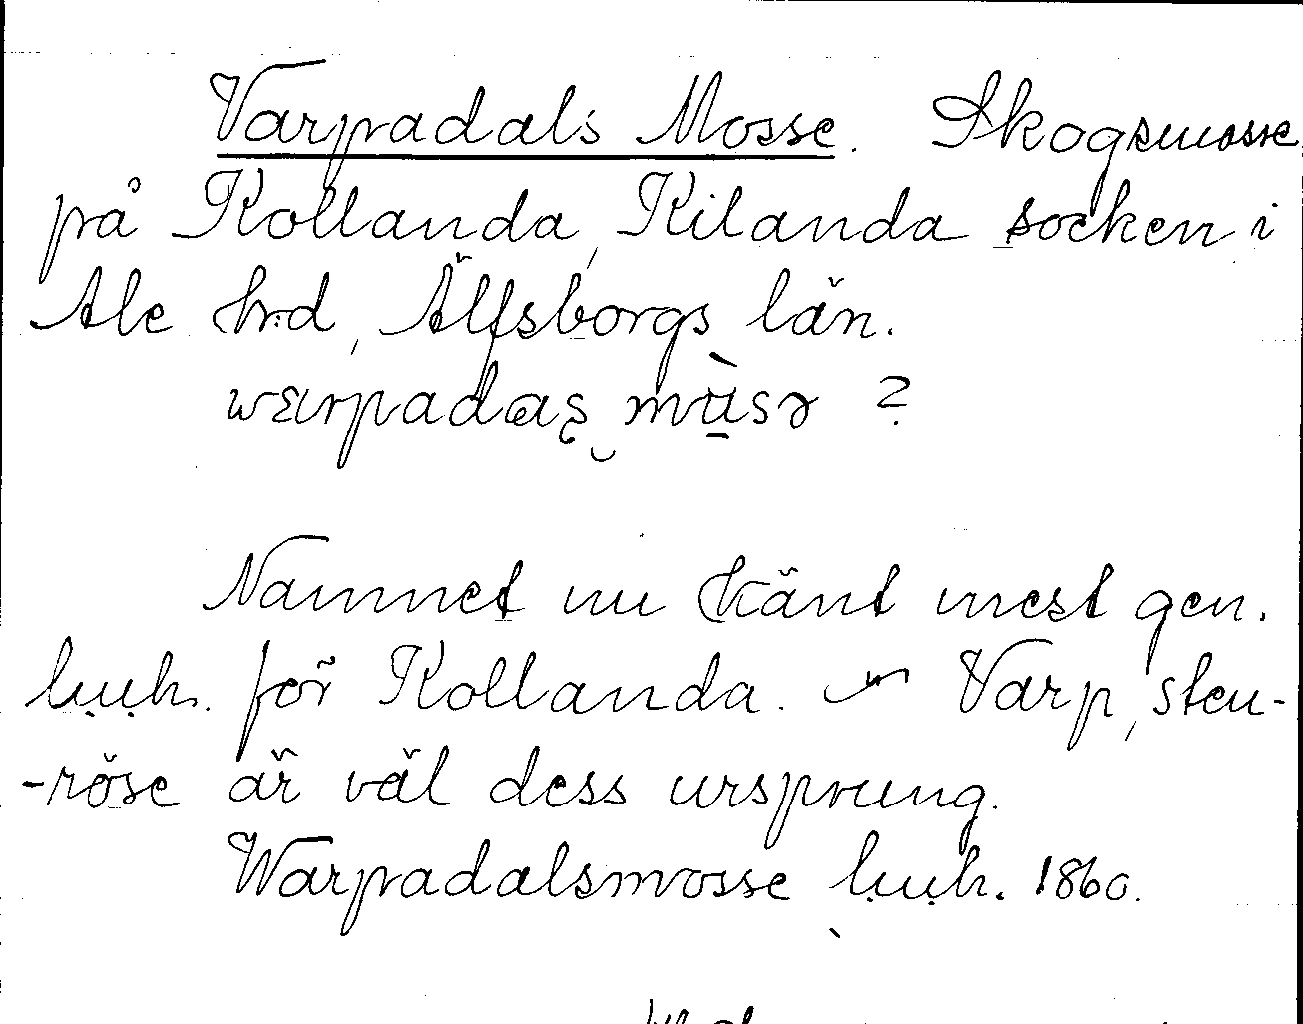 Varpadals Mosse. Skogsmosse
på Kollanda, Kilanda socken i
Ale hrd, Älfsborgs län.
warpadaș mùsə ?
Namnet nu känt mest gen.
h.u.h. för Kollanda. ~ Varp, sten-
-röse är väl dess ursprung.
Warpadalsmosse h.u.h. 1860.